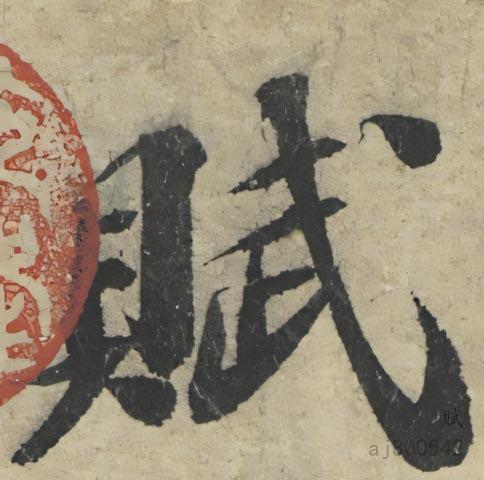 賦
賦
aj300542